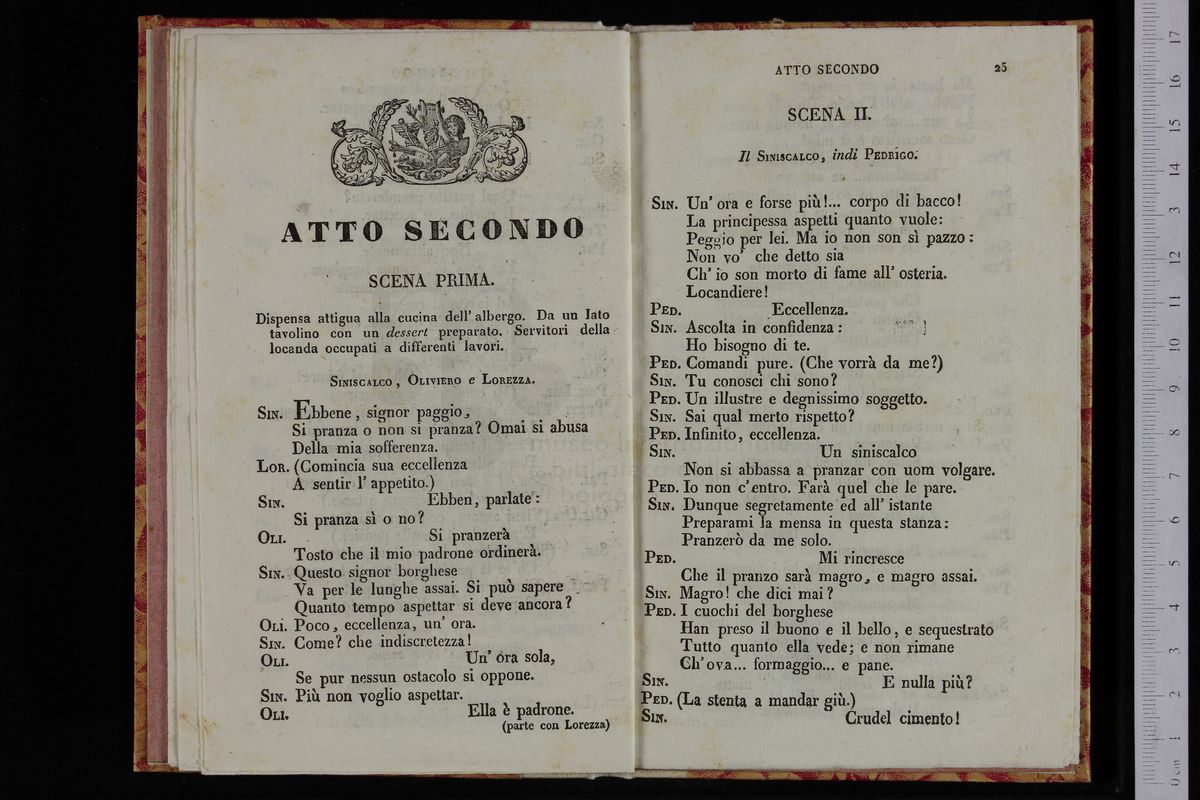 ATTO SECONDO
SCENA PRIMA.
Dispensa attigua alla cucina dell' albergo. Da un lato
tavolino con un dessert preparato. Servitori della
locanda occupati a differenti lavori.
SINISCALCO, OLIVIERO e LOREZZA.
SIN. Ebbene, signor paggio,
Si pranza o non si pranza? Omai si abusa
Della mia sofferenza.
LOR. (Comincia sua eccellenza
A sentir l' appetito.)
SIN. Ebben, parlate:
Si pranza sì o no?
OLI. Si pranzerà
Tosto che il mio padrone ordinerà.
SIN. Questo signor borghese
Va per le lunghe assai. Si può sapere
Quanto tempo aspettar si deve ancora?
OLI. Poco, eccellenza, un' ora.
SIN. Come? che indiscretezza!
OLI. Un' ora sola,
Se pur nessun ostacolo si oppone.
SIN. Più non voglio aspettar.
OLI. Ella è padrone.
(parte con Lorezza)
ATTO SECONDO 25
SCENA II.
Il SINISCALCO, indi PEDRIGO.
SIN. Un' ora e forse più!... corpo di bacco!
La principessa aspetti quanto vuole:
Peggio per lei. Ma io non son sì pazzo:
Non vo' che detto sia
Ch' io son morto di fame all' osteria.
Locandiere!
PED. Eccellenza.
SIN. Ascolta in confidenza:
Ho bisogno di te.
PED. Comandi pure. (Che vorrà da me?)
SIN. Tu conosci chi sono?
PED. Un illustre e degnissimo soggetto.
SIN. Sai qual merto rispetto?
PED. Infinito, eccellenza.
SIN. Un siniscalco
Non si abbassa a pranzar con uom volgare.
PED. Io non c'entro. Farà quel che le pare.
SIN. Dunque segretamente ed all' istante
Preparami la mensa in questa stanza:
Pranzerò da me solo.
PED. Mi rincresce
Che il pranzo sarà magro, e magro assai.
SIN. Magro! che dici mai?
PED. I cuochi del borghese
Han preso il buono e il bello, e sequestrato
Tutto quanto ella vede; e non rimane
Ch' ova... formaggio... e pane.
SIN. E nulla più?
PED. (La stenta a mandar giù.)
SIN. Crudel cimento!
0 cm 1 2 3 4 5 6 7 8 9 10 11 12 3 14 15 16 17